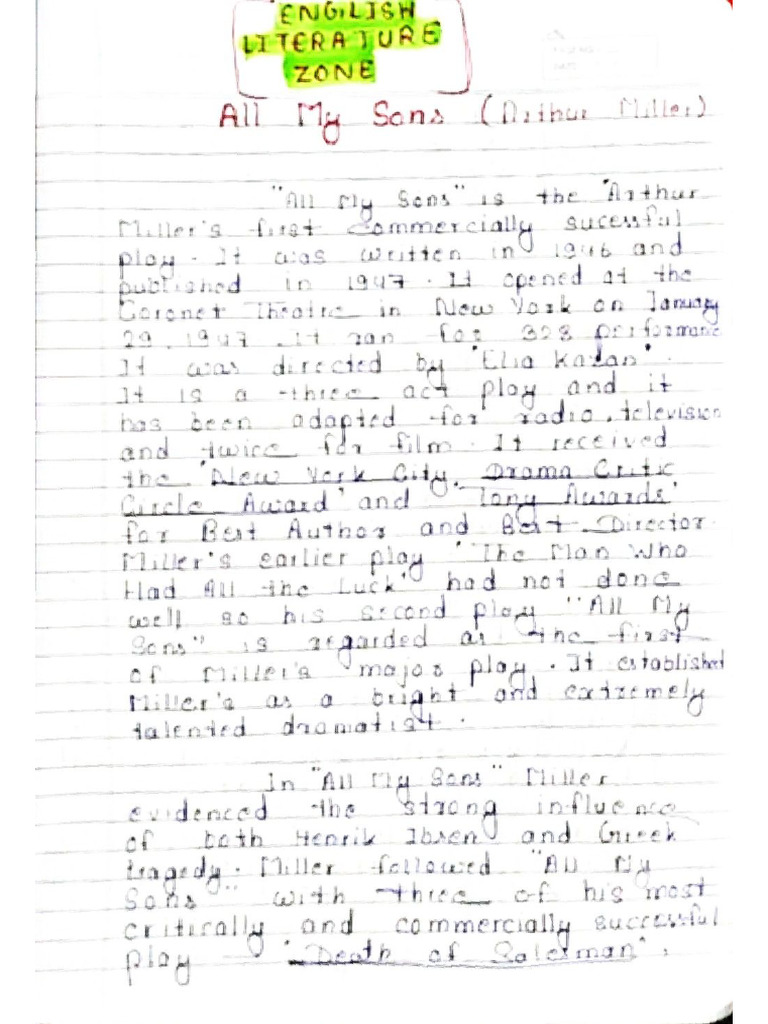 ENGLISH
LITERATURE
ZONE
All My Sons (Arthur Miller)
"All My Sons" is the 'Arthur
Miller's first commercially sucessful
play. It was written in 1946 and
published in 1947. It opened at the
Coronet Theatre in New York on January
29, 1947. It ran for 328 performance
It was directed by 'Elia Kazan'.
It is a three act play and it
has been adapted for radio, television
and twice for film. It received
the 'New York City, Drama Critic
Circle Award' and 'Tony Awards'
for Best Author and Best Director.
Miller's earlier play 'The Man Who
Had All the Luck' had not done
well so his second play "All My
Sons" is regarded as the first
of Miller's major play. It established
Miller's as a bright and extremely
talented dramatist.
In "All My Sons" Miller
evidenced the strong influence
of both Henrik Ibsen and Greek
tragedy. Miller followed "All My
Sons" with three of his most
critically and commercially successful
play - 'Death of Salesman',